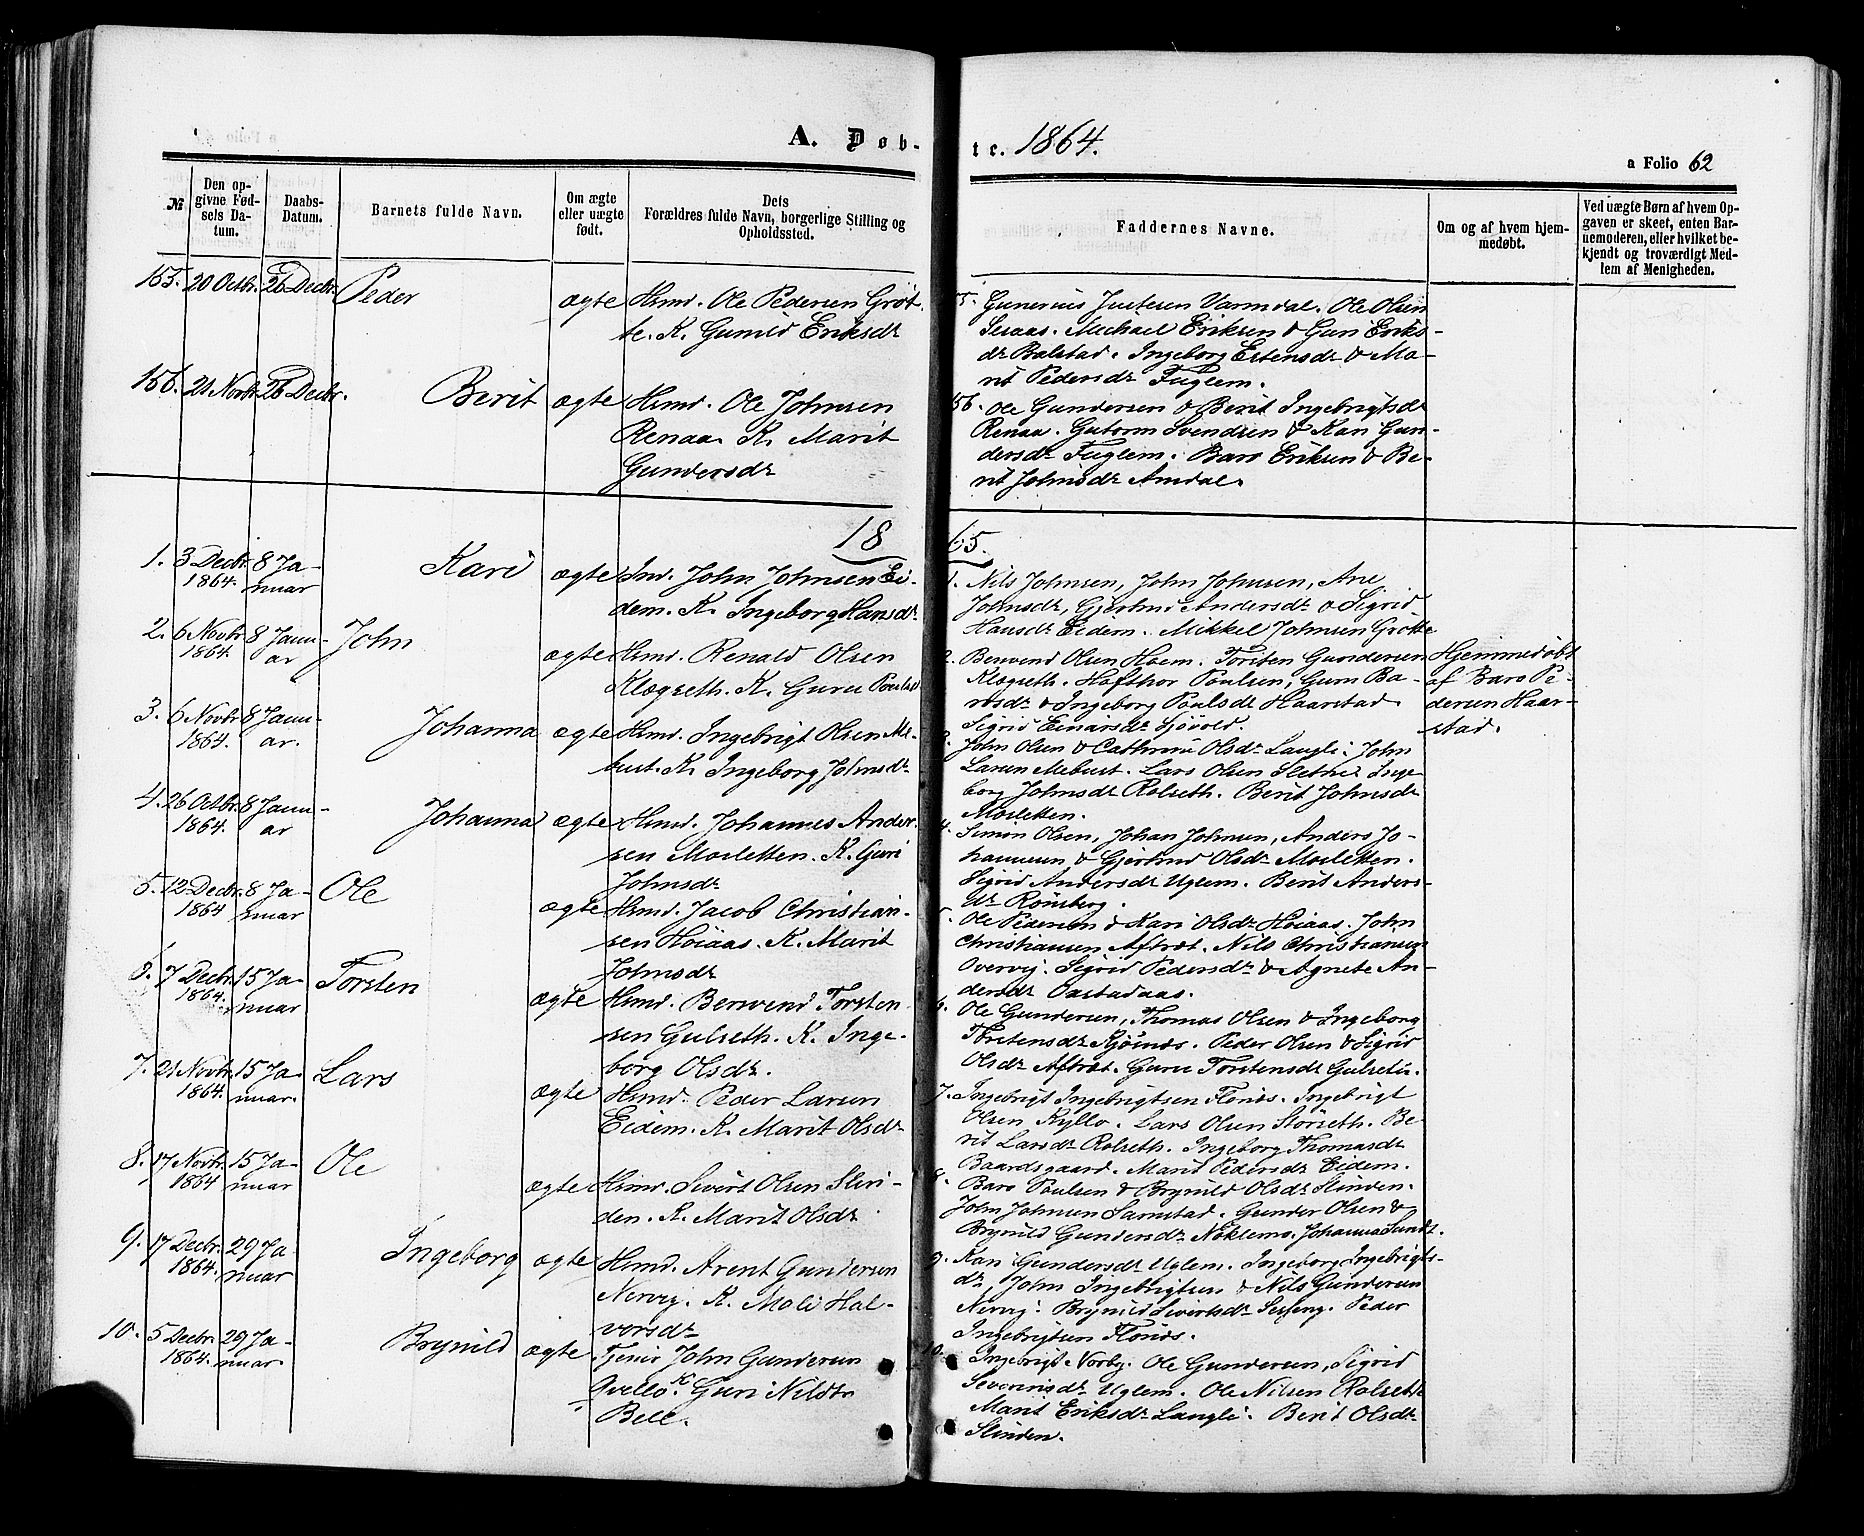 A. Døb-
te. 1864.
a Folio 62
№
Den op-
givne Fød-
sels Da-
tum.
Daabs-
Datum.
Barnets fulde Navn.
Om ægte
eller uægte
født.
Dets
Forældres fulde Navn, borgerlige Stilling og
Opholdssted.
Faddernes Navne.
Om og af hvem hjem-
medøbt.
Ved uægte Børn af hvem Op-
gaven er skeet, enten Bar-
nemoderen, eller hvilket be-
kjendt og troværdigt Med-
lem af Menigheden.
155. 20 Octb. 26 Decbr. Peder ægte Hsmd. Ole Pedersen Grøt-
te. K. Gunild Eriksdr
55. Gunerius Justesen Varmdal. Ole Olsen
Seraas. Michael Eriksen & Guri Eriks-
dr Balstad. Ingeborg Estensdr & Ma-
rit Pedersdr Fuglem.
156. 21 Novbr. 26 Decbr. Berit ægte Hsmd. Ole Johnsen
Renaa. K. Marit
Gundersdr
56. Ole Gundersen & Berit Ingebrigtsdr
Renaa. Gutorm Svendsen & Kari Gun-
dersdr Fuglem. Baro Eriksen & Be-
rit Johnsdr Amdal.
1865.
1. 3 Decbr 1864. 8 Ja-
nuar Kari ægte Ind. John Johnsen Ei-
dem. K. Ingeborg Hansdr
1. Nils Johnsen, John Johnsen, Ane
Johnsdr, Gjertrud Andersdr & Sigrid
Hansdr Eidem. Mikkel Johnsen Grøtte
2. 6 Novbr 1864. 8 Janu-
ar John ægte Hsmd. Renald Olsen
Klægseth. K. Guru Poulsd
2. Benvend Olsen Hoem. Torsten Gundersen
Klægseth. Hafthor Poulsen, Guru Ba-
rosdr & Ingeborg Poulsdr Haarstad.
Sigrid Einarsdr Sjøvold.
Hjemmedøbt
af Baro Pe-
dersen Haar-
stad.
3. 6 Novbr 1864. 8 Janu-
ar. Johanna ægte Hsmd. Ingebrigt Olsen Me-
bust. K. Ingeborg Johnsdr
3. John Olsen & Cathrine Olsdr Langli. John
Larsen Mebust. Lars Olsen Slethe. Inge-
borg Johnsdr Rolseth. Berit Johnsdr
Mosletten.
4. 26 Octbr. 1864. 8 Janu-
ar Johanna ægte Hsmd. Johannes Ander-
sen Mosletten. K. Guri
Johnsdr
4. Simon Olsen, Johan Johnsen, Anders Jo-
hannesen & Gjertrud Olsdr Mosletten.
Sigrid Andersdr Uglem. Berit Anders-
dr Rønsberg.
5. 12 Decbr. 1864 8 Ja-
nuar Ole ægte Hsmd. Jacob Christian-
sen Høiaas. K. Marit
Johnsdr
5. Ole Pedersen & Kari Olsdr Høiaas. John
Christiansen Aftræt. Nils Christiansen
Overvig. Sigrid Pedersdr & Agnete An-
dersdr Oustadaas.
6. 7 Decbr. 1864. 15 Ja-
nuar Torsten ægte Hsmd. Benvend Torsten-
sen Gulseth. K. Inge-
borg Olsdr.
6. Ole Gundersen, Thomas Olsen & Ingeborg
Torstensdr Kjøsnes. Peder Olsen & Sigrid
Olsdr Aftræt. Guru Torstensdr Gulseth.
7. 21 Novbr. 1864. 15 Ja-
nuar. Lars ægte Hsmd. Peder Larsen
Eidem. K. Marit Olsdr
7. Ingebrigt Ingebrigtsen Flønes. Ingebrigt
Olsen Kyllo. Lars Olsen Størseth. Be-
rit Larsdr Rolseth. Ingeborg Thomasdr
Baardsgaard. Marit Pedersdr Eidem.
8. 17 Novbr. 1864 15 Ja-
nuar Ole ægte Hsmd. Sivert Olsen Slin-
den. K. Marit Olsdr
8. Baro Poulsen & Brynild Olsdr Slinden.
John Johnsen Samstad. Gunder Olsen &
Brynild Gundersdr Noklemo. Johanna Sundt.
9. 17 Decbr. 1864. 29 Ja-
nuar Ingeborg ægte Hsmd. Arent Gundersen
Nervig. K. Mali Hal-
vorsdr
9. Kari Gundersdr Uglem. Ingeborg Ingebrigts-
dr, John Ingebrigtsen & Nils Gundersen
Nervig. Brynild Sivertsdr Sesseng. Peder
Ingebrigtsen Flønes.
10. 5 Decbr. 1864. 29 Ja-
nuar. Brynild ægte Tjener John Gundersen
Qvello K. Guri Nilsdr
Bell.
10. Ingebrigt Norby. Ole Gundersen, Sigrid
Severinsdr Uglem. Ole Nilsen Rolseth
Marit Eriksdr Langli. Berit Olsdr
Slinden.